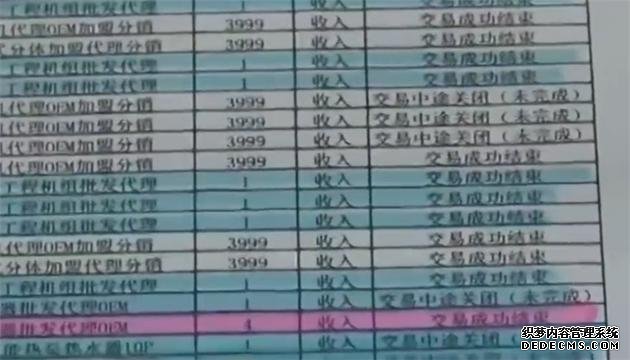 工程机组批发代理 1 收入 交易成功结束
代理OEM加盟分销 3999 收入 交易成功结束
分体加盟代理分销 3999 收入 交易成功结束
工程机组批发代理 1 收入 交易成功结束
工程机组批发代理 1 收入 交易成功结束
代理OEM加盟分销 3999 收入 交易中途关闭（未完成）
代理OEM加盟分销 3999 收入 交易中途关闭（未完成）
代理OEM加盟分销 3999 收入 交易中途关闭（未完成）
代理OEM加盟分销 3999 收入 交易成功结束
工程机组批发代理 1 收入 交易成功结束
工程机组批发代理 1 收入 交易成功结束
工程机组批发代理 1 收入 交易成功结束
代理OEM加盟分销 3999 收入 交易成功结束
分体加盟代理分销 3999 收入 交易成功结束
工程机组批发代理 1 收入 交易成功结束
器批发代理OEM 1 收入 交易中途关闭（未完成）
器批发代理OEM 4 收入 交易成功结束
热泵热水器10P 1 收入 交易中途关闭（
织梦内容管理系统
DEDECMS.COM